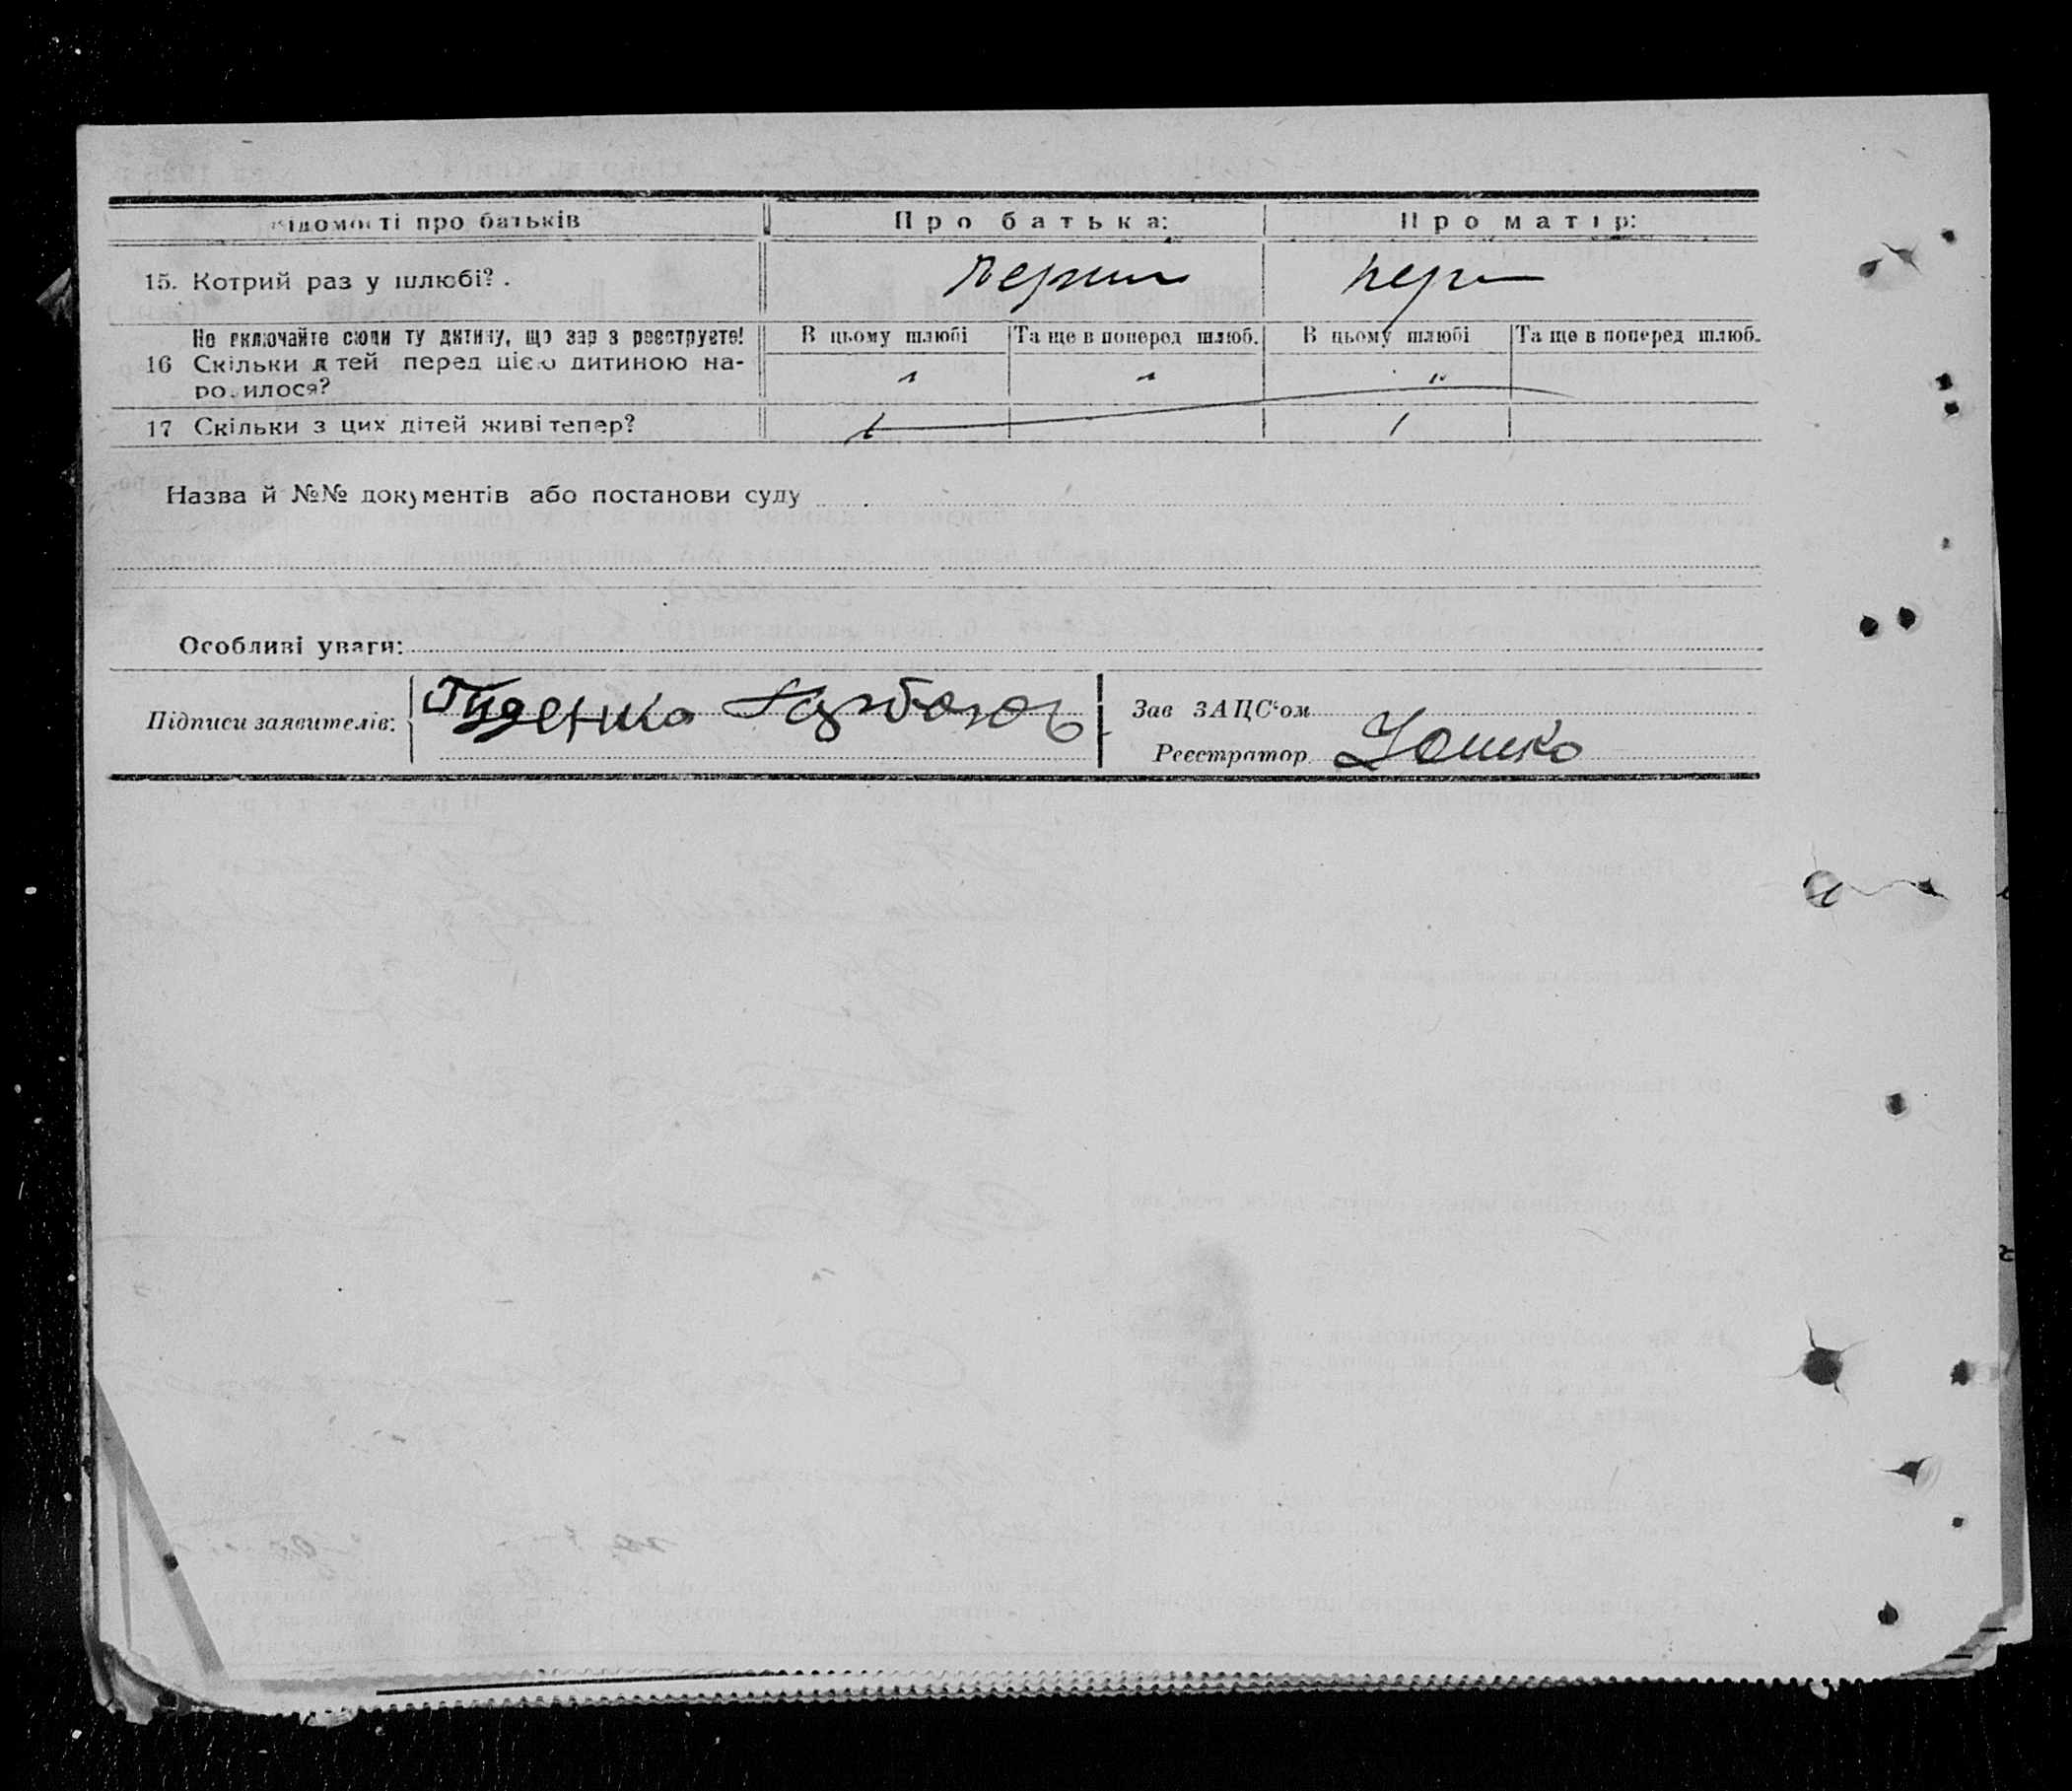 Відомості про батьків Про батька: Про матір:
15. Котрий раз у шлюбі?. перший пер
Не включайте сюди ту дитину, що зар з реєструєте! В цьому шлюбі Та ще в поперед шлюб. В цьому шлюбі Та ще в поперед шлюб.
16 Скільки дітей перед цією дитиною на-
родилося? " " "
17 Скільки з цих дітей живі тепер? 1 1
Назва й №№ документів або постанови суду
Особливі уваги:
Підписи заявителів: Гуденко
Зав ЗАЦС'ом
Реєстратор Юшко